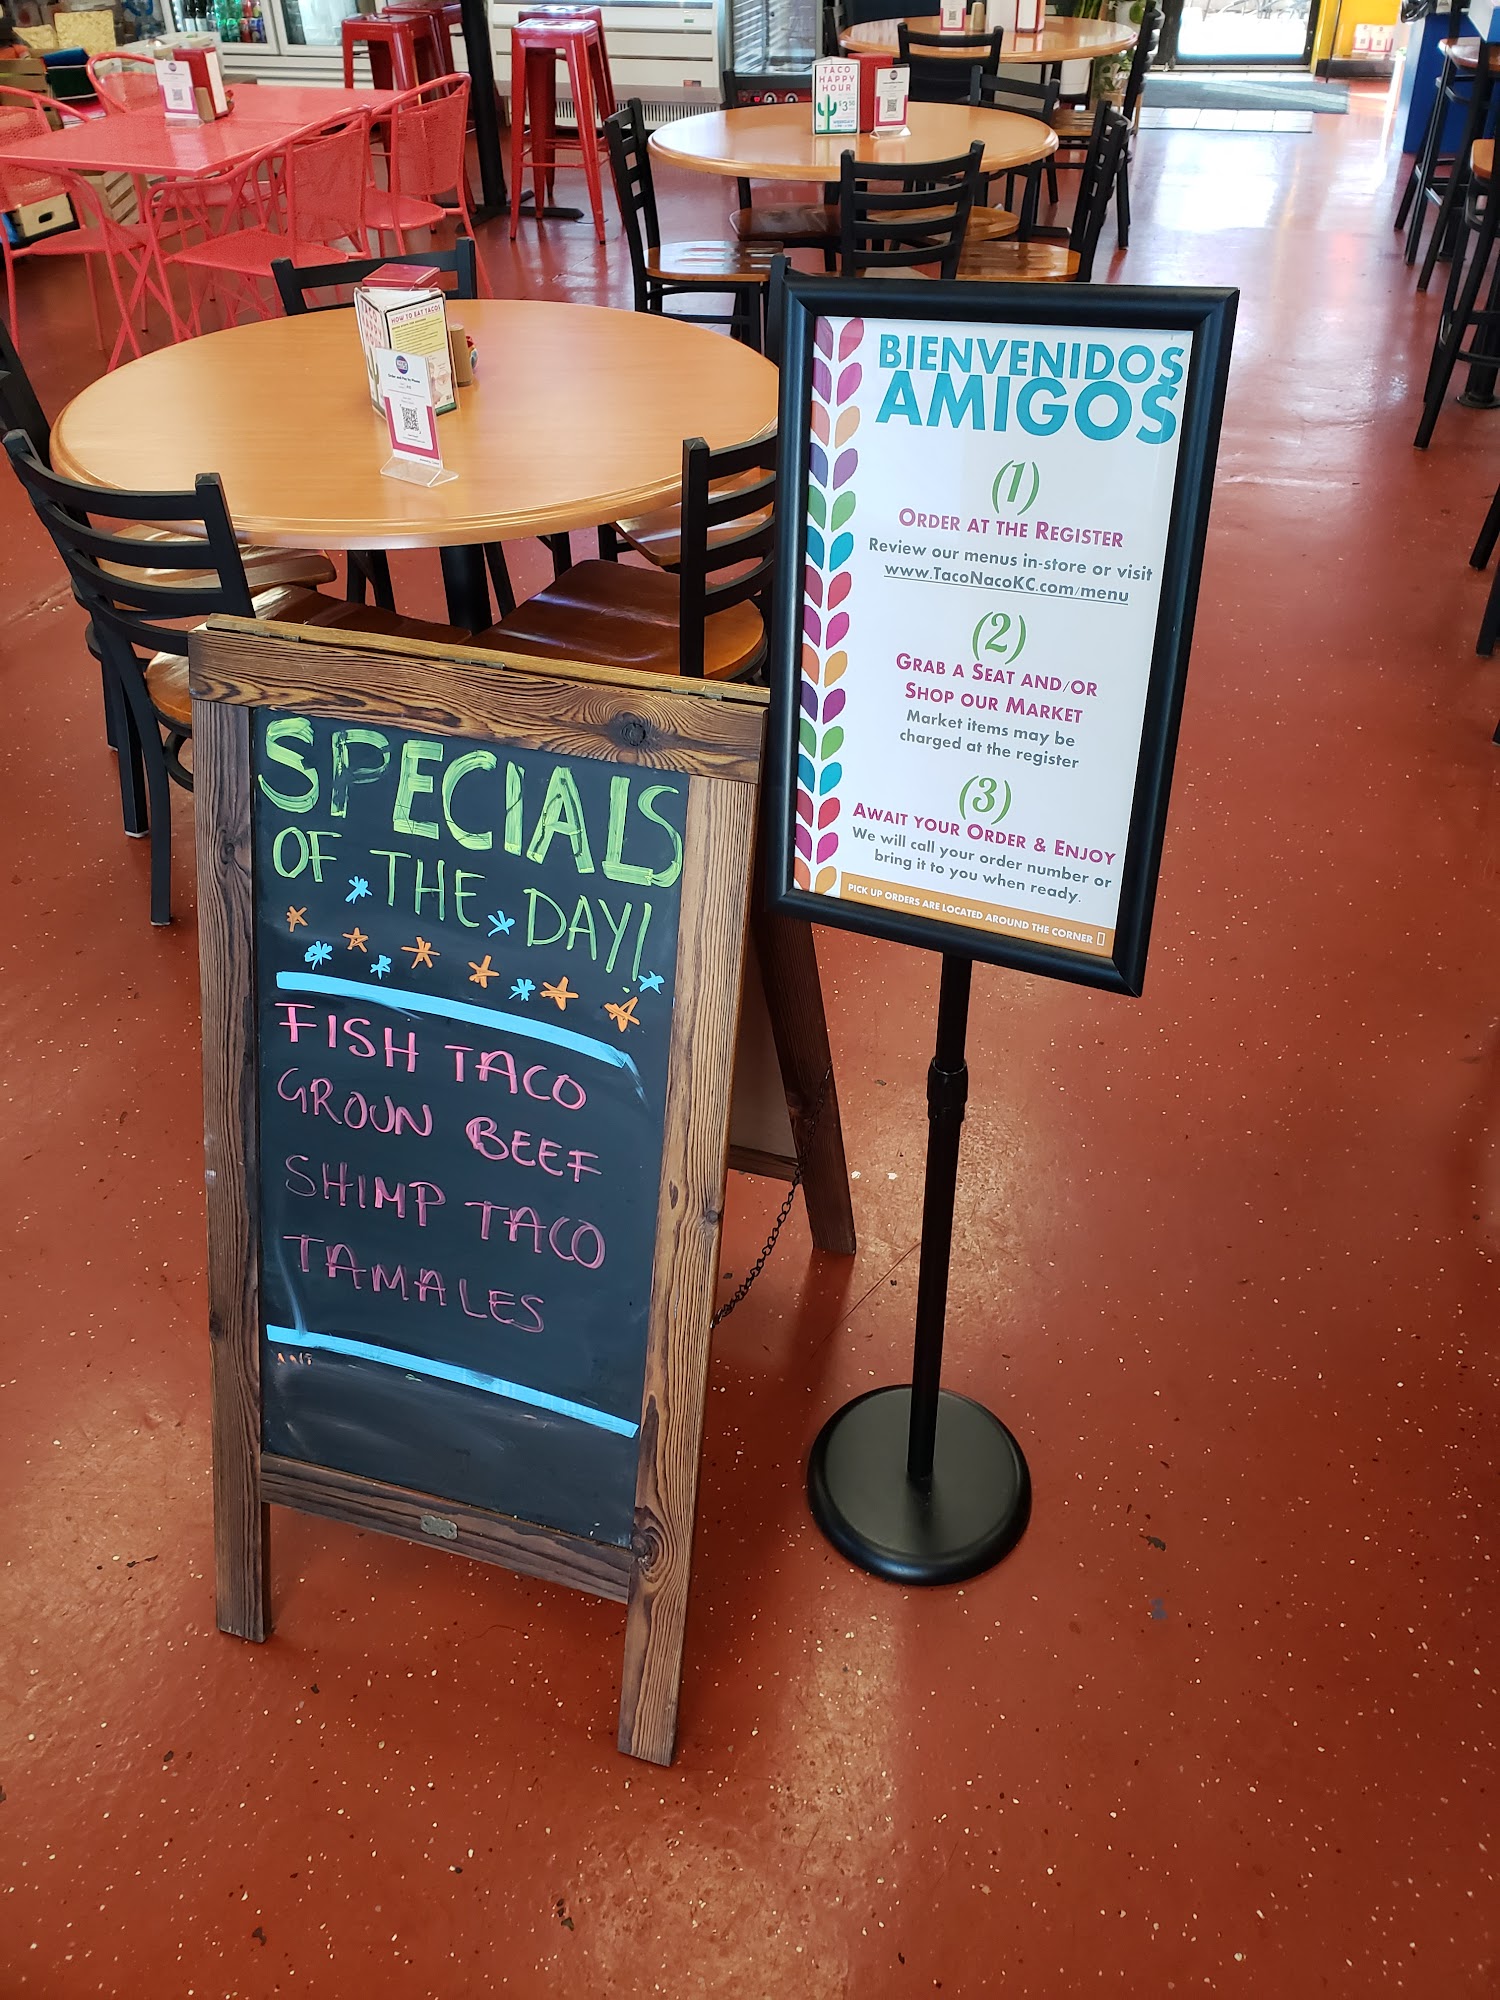 SPECIALS
OF THE DAY!
FISH TACO
GROUN BEEF
SHIMP TACO
TAMALES
BIENVENIDOS
AMIGOS
(1)
ORDER AT THE REGISTER
Review our menus in-store or visit
www.TacoNacoKC.com/menu
(2)
GRAB A SEAT AND/OR
SHOP OUR MARKET
Market items may be
charged at the register
(3)
AWAIT YOUR ORDER & ENJOY
We will call your order number or
bring it to you when ready.
PICK UP ORDERS ARE LOCATED AROUND THE CORNER
HOW TO EAT TACOS
Order and Pay by Phone
TACO
HAPPY
HOUR